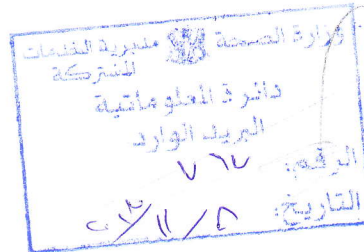 وزارة الصحة مديرية الخدمات
المشتركة
دائرة المعلوماتية
البريد الوارد
الرقم: ٧٦٧
التاريخ: ٨/١١/